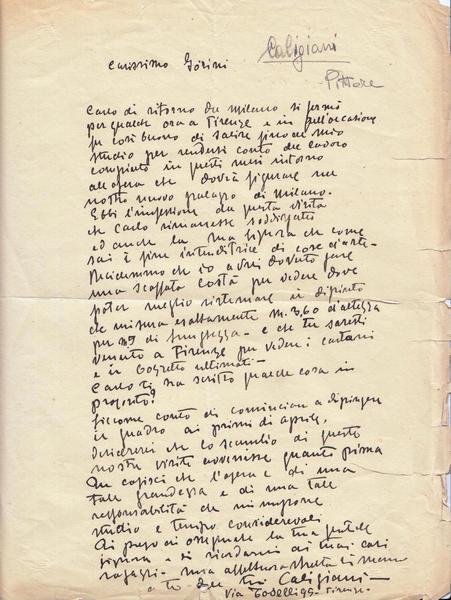 Caligiani
Pittore
Carissimo Gorini
Carlo di ritorno da Milano si fermò
per qualche ora a Firenze e in quell'occasione
fu così buono di salire fino al mio
studio per rendersi conto del lavoro
compiuto in questi mesi intorno
all'opera che dovrà figurare nel
nostro nuovo palazzo di Milano.
Ebbi l'impressione da questa visita
che Carlo rimanesse soddisfatto
ed anche la sua signora che come
sai è fine intenditrice di cose d'arte -
che io avrei dovuto fare
una scappata costà per vedere dove
poter meglio sistemare il dipinto
che misura esattamente m. 3,60 d'altezza
per di lunghezza - e che tu saresti
venuto a Firenze per vedere i cartoni
e il bozzetto ultimati -
Carlo ti ha scritto qualche cosa in
proposito?
Siccome conto di cominciare a dipingere
il quadro ai primi di aprile,
desidererei che lo scambio di queste
nostre visite avvenisse quanto prima
Tu capisci che l'opera è di una
tale grandezza e di una tale
responsabilità che mi impone
studio e tempo considerevoli
Ti prego di ossequiare la tua gentile
signora - di ricordarmi ai tuoi cari
ragazzi - una affettuosa stretta di mano
a te dal tuo Caligiani -
Via 99 - Firenze -